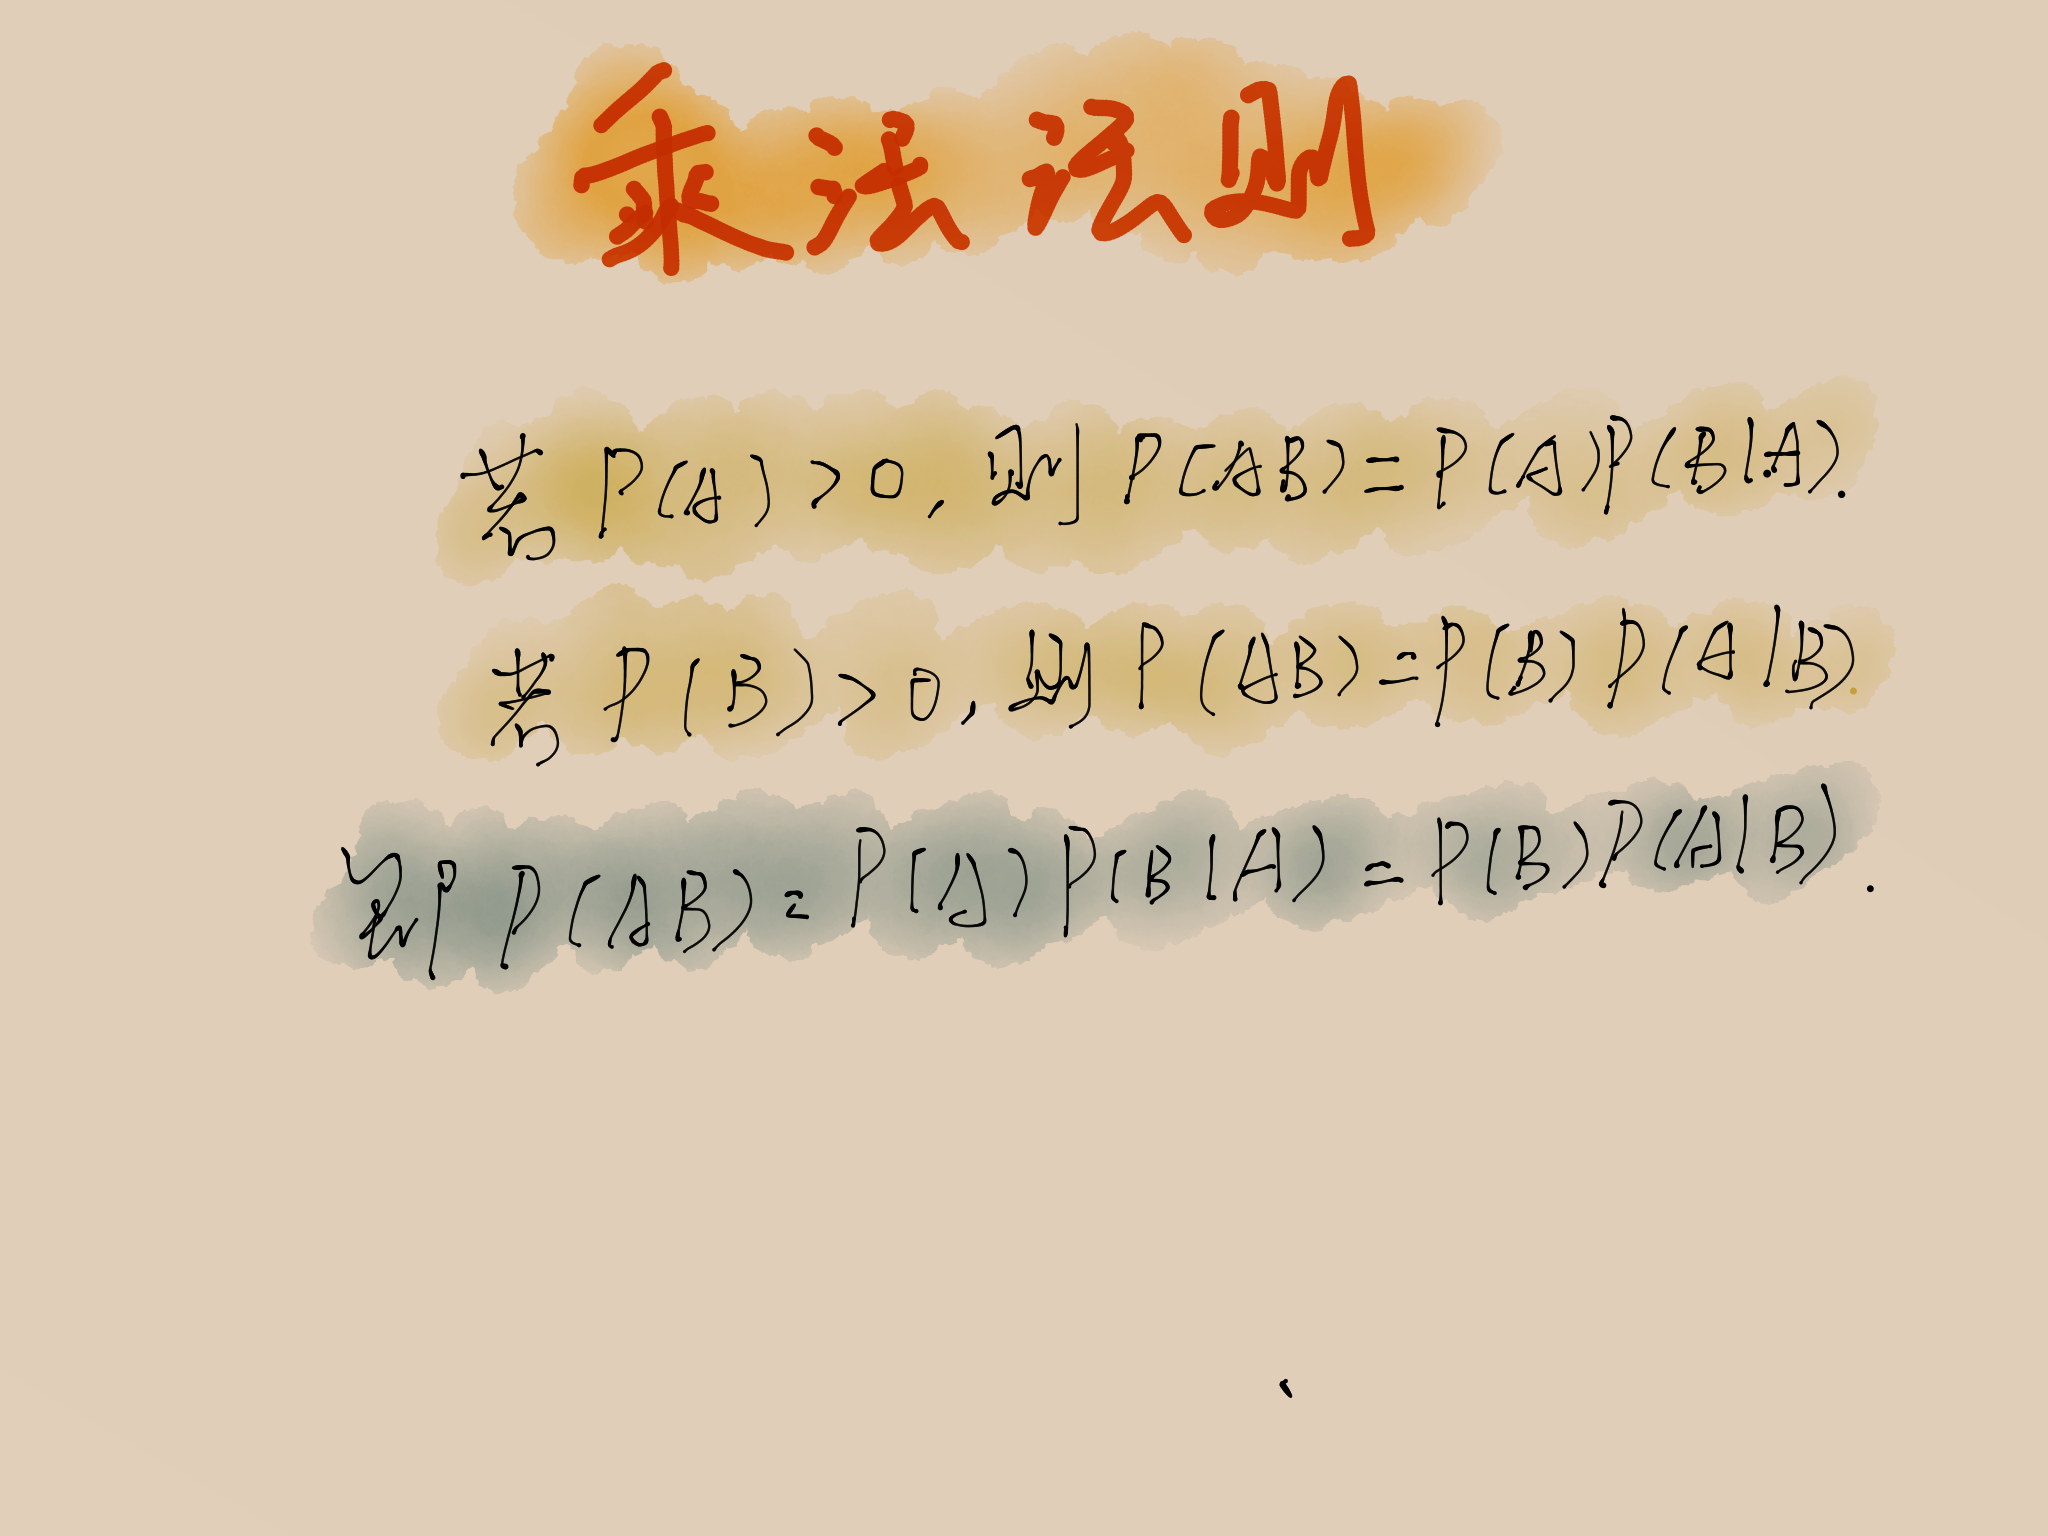 乘法法则
若 P(A) > 0, 则 P(AB) = P(A)P(B|A).
若 P(B) > 0, 则 P(AB) = P(B)P(A|B).
即 P(AB) = P(A)P(B|A) = P(B)P(A|B).